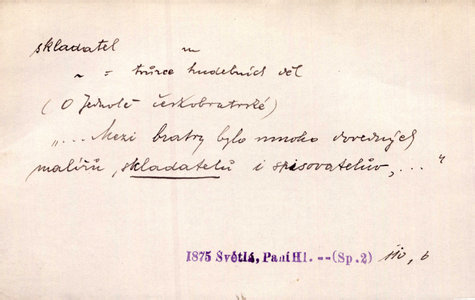 skladatel m
~ = tvůrce hudebních děl
(O Jednotě českobratrské)
"... Mezi bratry bylo mnoho dovedných
malířů, skladatelů i spisovatelův, ..."
1875 Světlá, Paní Hl. -- (Sp. 2) 110, b